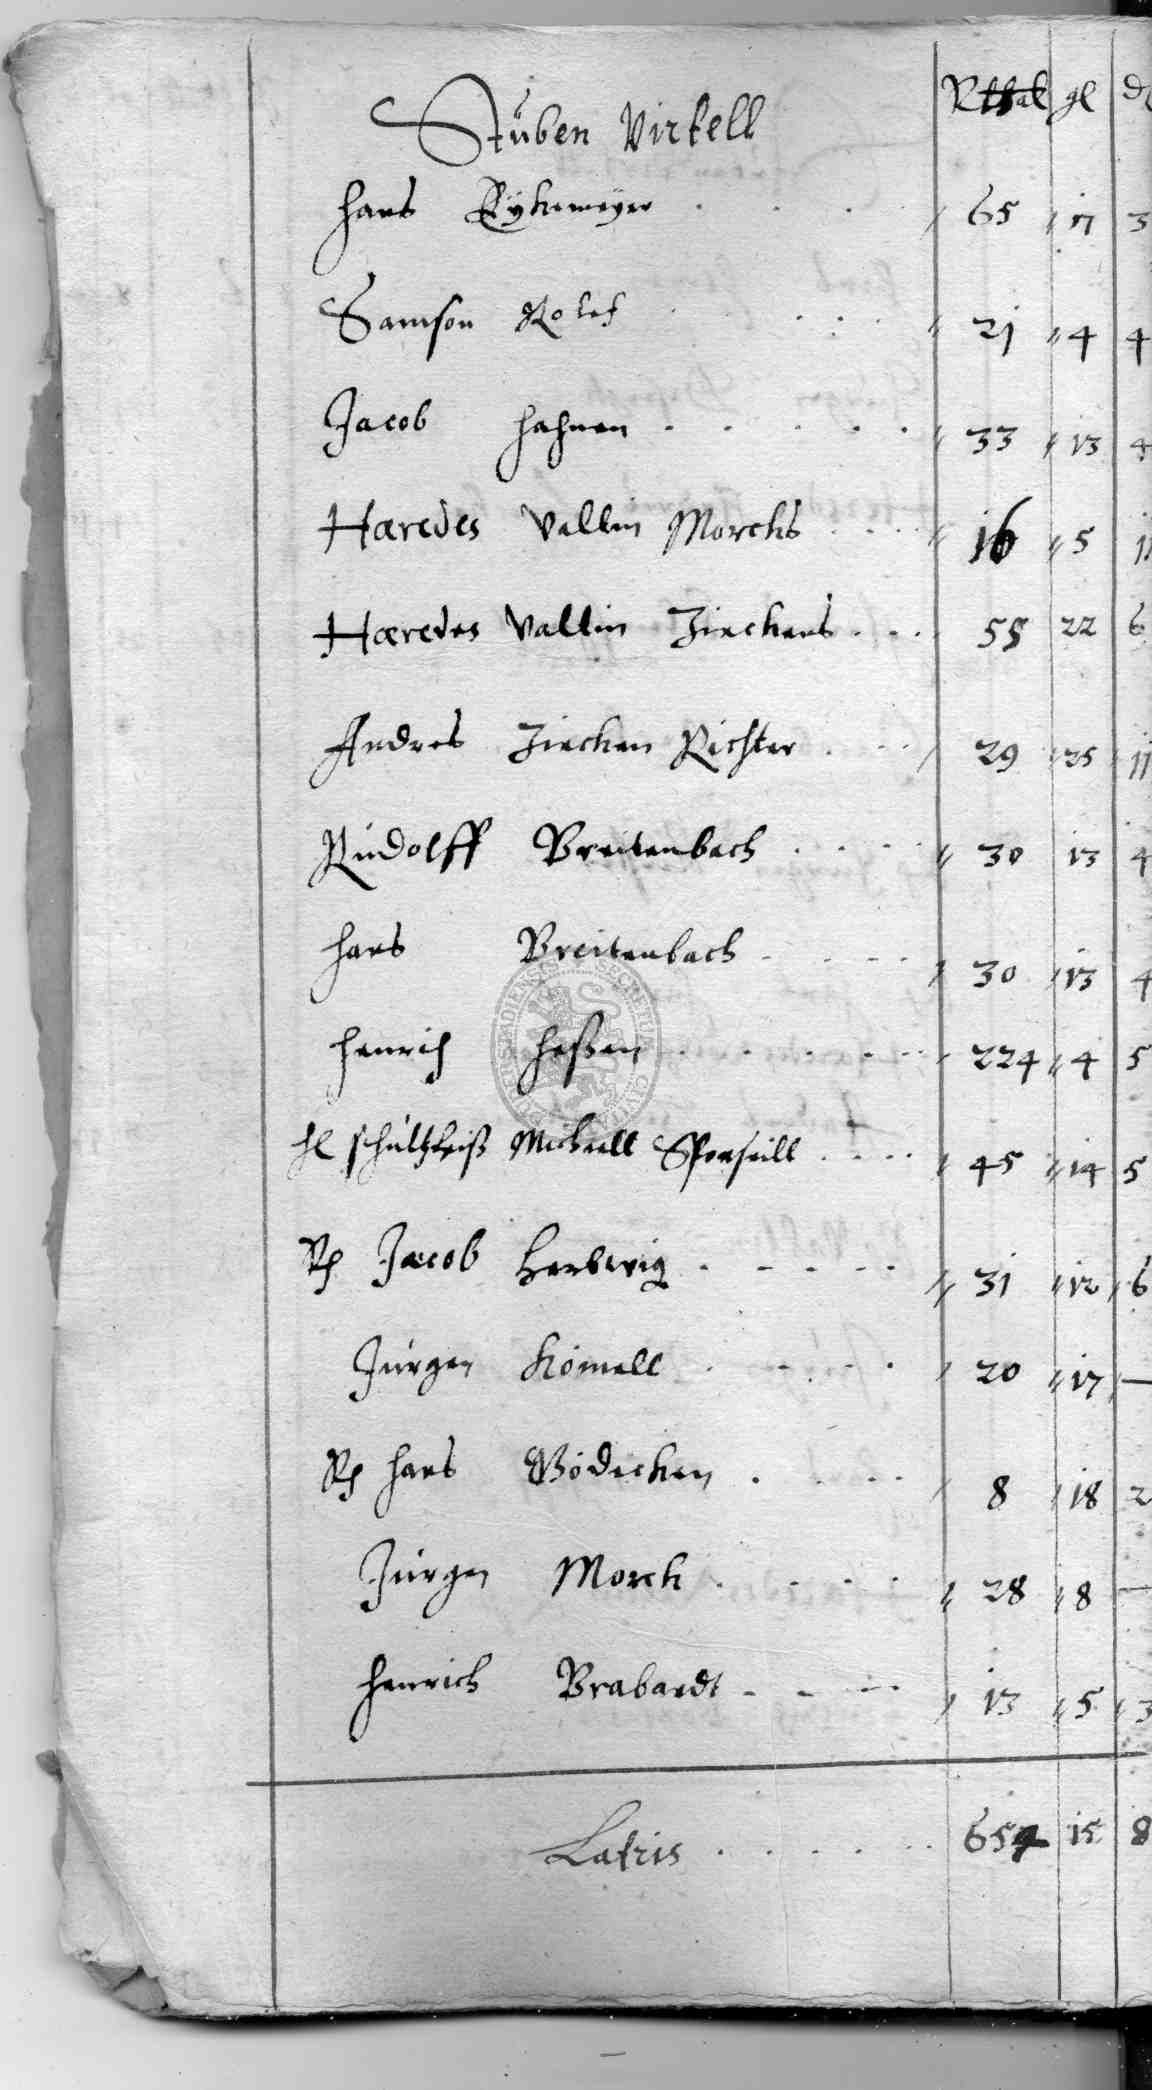 Rthal gl d
Stuben Virtell
Hans Rykemeyer . . . . 65 17 3
Samson Rolef . . . . 21 4 4
Jacob Hahnen . . . . . 33 13 4
Hæredes Vallin Morcks . . . 16 5 11
Hæredes Vallin Zieckens . . . 55 22 6
Andres Ziecken Richter . . . 29 25 11
Rudolff Breitenbach . . . . 30 13 4
Hans Breitenbach . . . . 30 13 4
Henrich Heßen . . . . . 224 4 5
H schultheiß Michaell . . . . 45 14 5
Jacob Hartwig . . . . . 31 12 6
Jurgen Komell . . . . 20 17 —
Hans Bödecken . . . . 8 18 2
Jurgen Morck . . . . 28 8 —
Henrich Brabandt . . . . 13 5 3
Latris . . . . . . 654 15 8